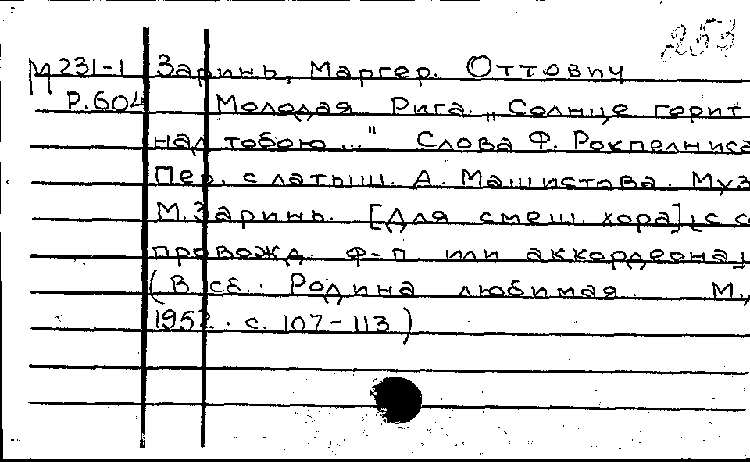 253
М 231-1 Заринь, Маргер. Оттович
Р.604 Молодая Рига. "Солнце горит
над тобою..." Слова Ф. Рокпелниса
Пер. с латыш. А. Машистова. Муз
М. Заринь. [Для смеш. хора] [с со
провожд. ф-п или аккордеона]
(В сб. Родина любимая. М.,
1952. с. 107-113)